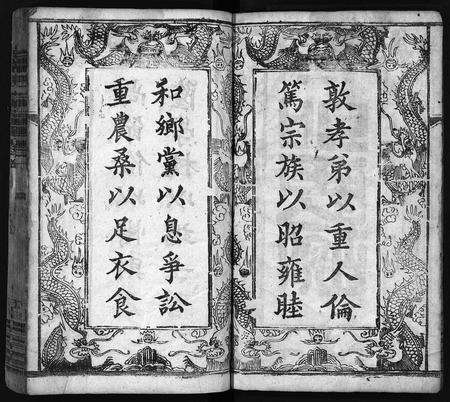 敦孝弟以重人倫
篤宗族以昭雍睦
和鄉黨以息爭訟
重農桑以足衣食